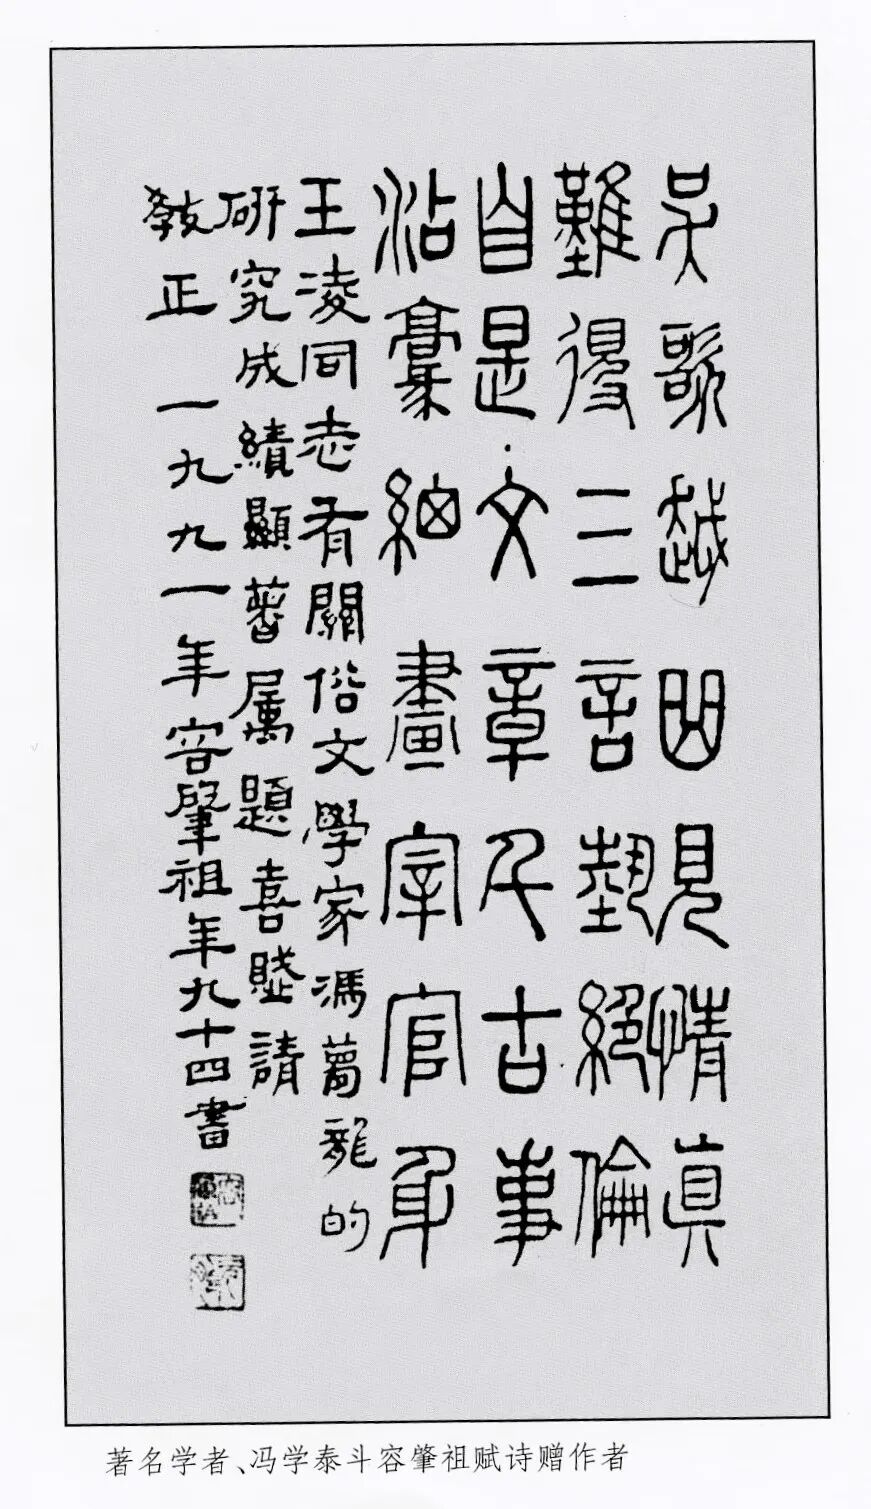 吳歌越曲見情真
難得三言埶絕倫
自是文章千古事
沾稾細畫宰官身
王凌同志有關俗文學家馮夢龍的
研究成績顯著属題喜賦請
教正 一九九一年容肇祖年九十四書
著名学者、冯学泰斗容肇祖赋诗赠作者